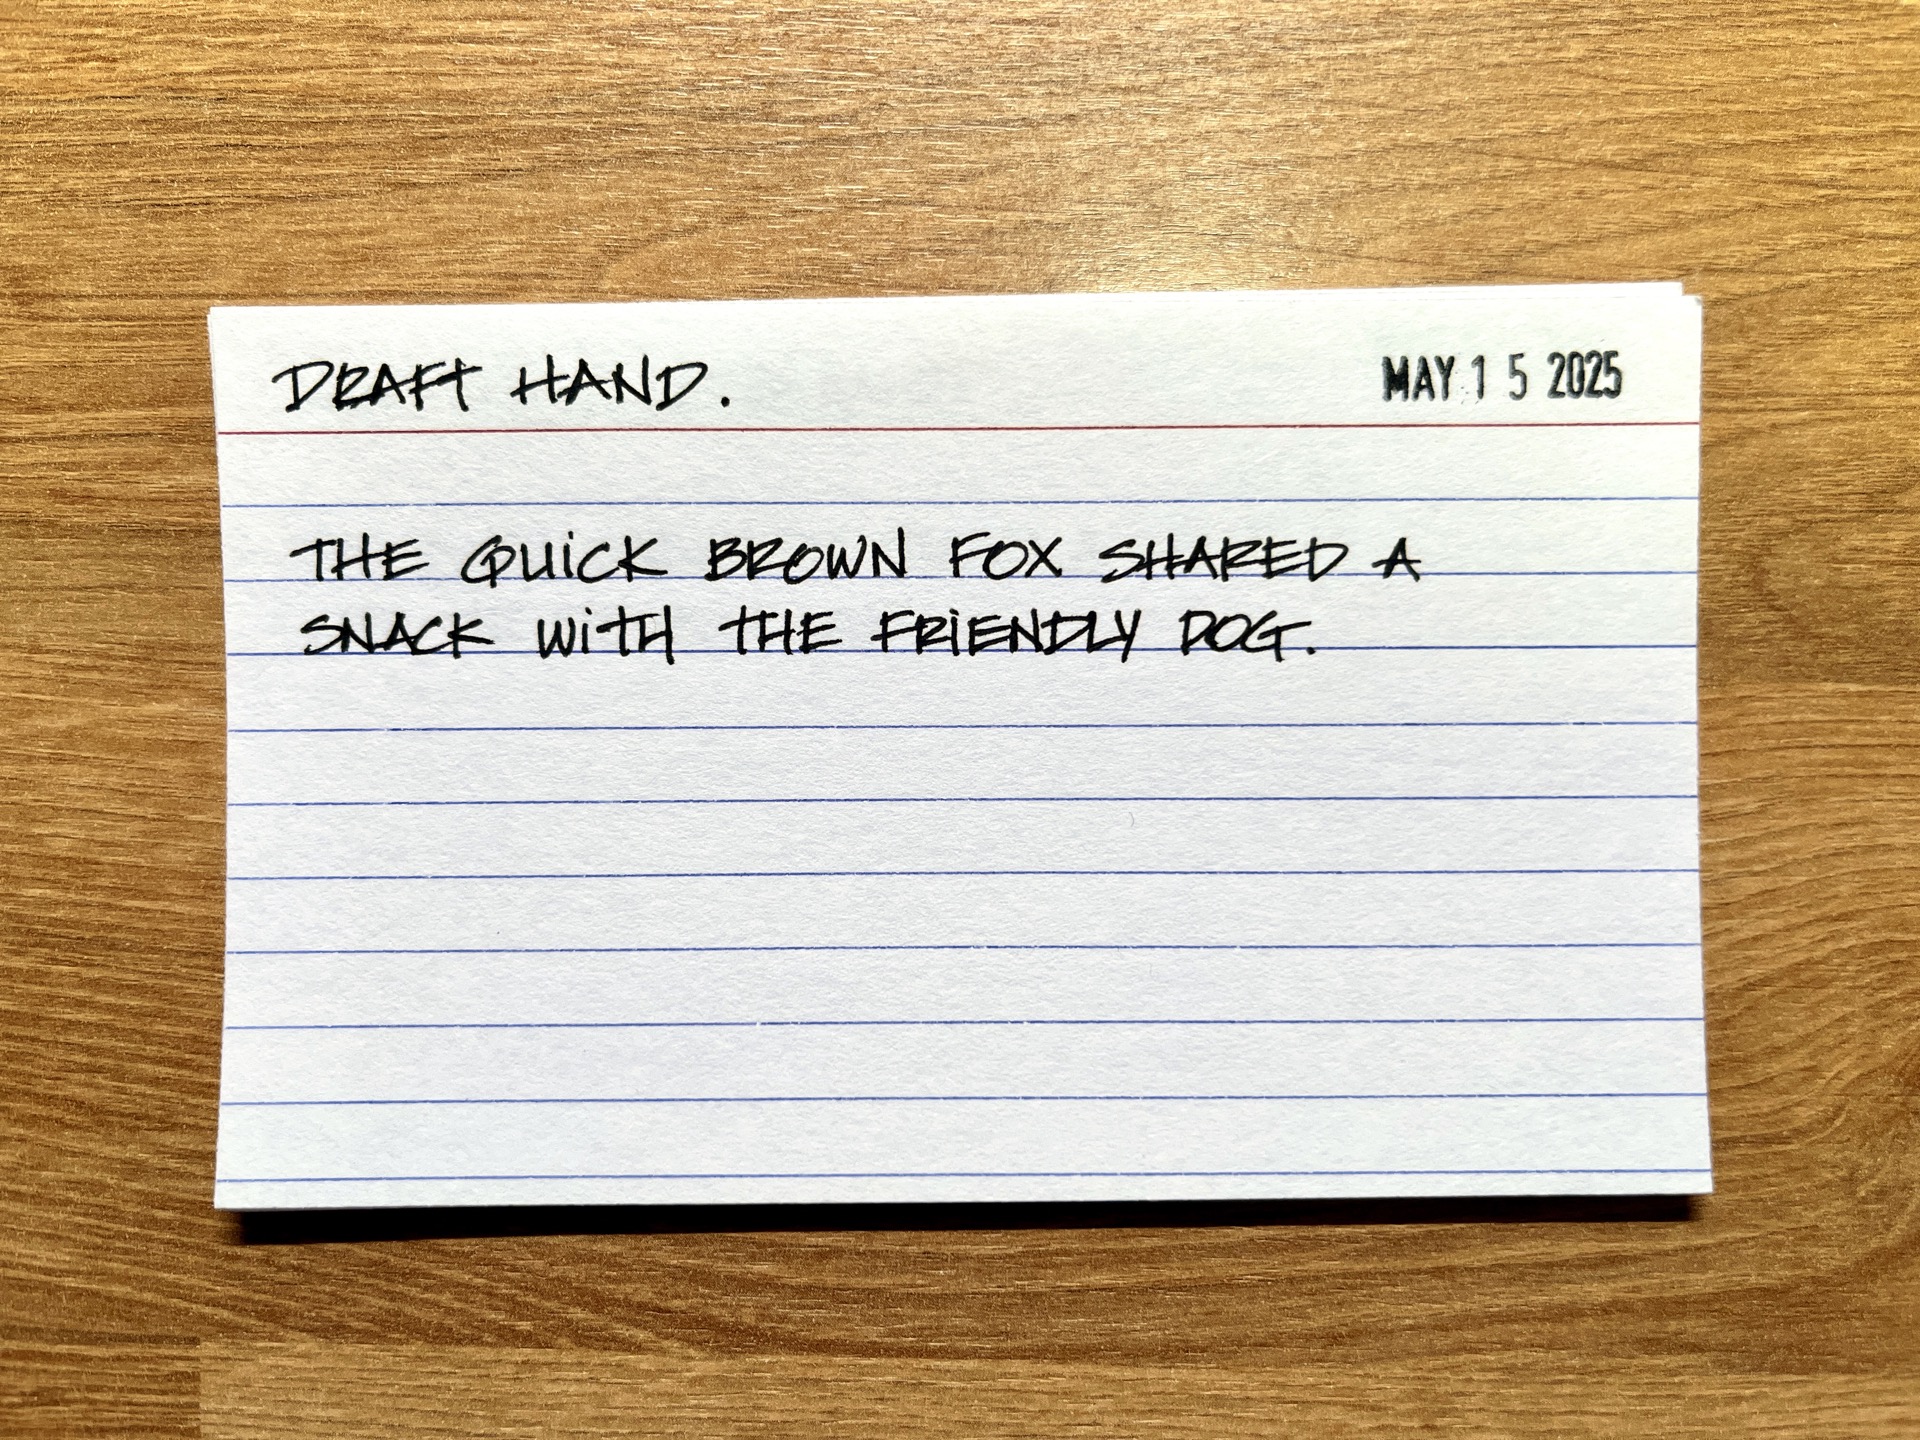 DRAFT HAND. MAY 15 2025
THE QUiCK BROWN FOX SHARED A
SNACK WiTH THE FRiENDLY DOG.